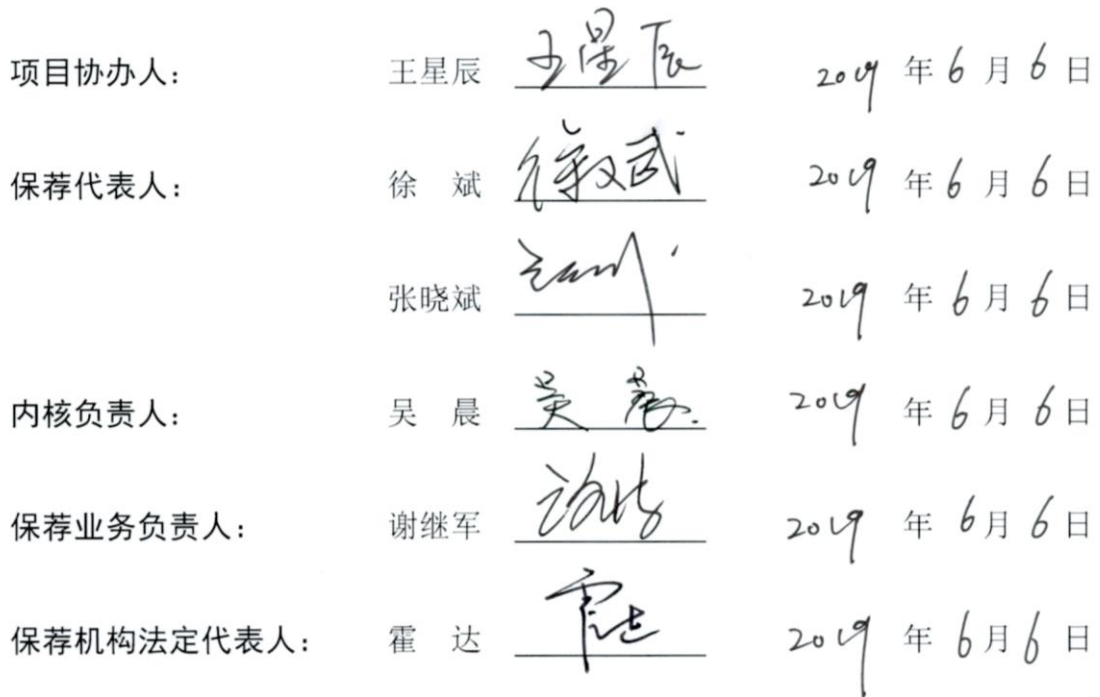 项目协办人： 王星辰 王星辰 2019 年 6 月 6 日
保荐代表人： 徐 斌 徐斌 2019 年 6 月 6 日
张晓斌 2019 年 6 月 6 日
内核负责人： 吴 晨 吴晨 2019 年 6 月 6 日
保荐业务负责人： 谢继军 2019 年 6 月 6 日
保荐机构法定代表人： 霍 达 霍达 2019 年 6 月 6 日